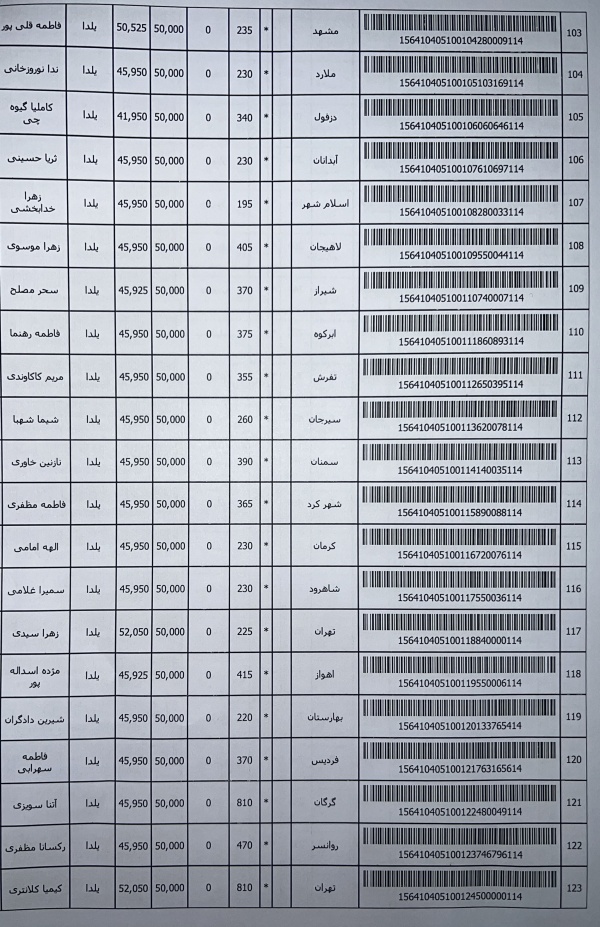 103 156410405100104280009114 مشهد * 235 0 50,000 50,525 یلدا فاطمه قلی پور
104 156410405100105103169114 ملارد * 230 0 50,000 45,950 یلدا ندا نوروزخانی
105 156410405100106060646114 دزفول * 340 0 50,000 41,950 یلدا کاملیا گیوه
چی
106 156410405100107610697114 آبدانان * 230 0 50,000 45,950 یلدا ثریا حسینی
107 156410405100108280033114 اسلام شهر * 195 0 50,000 45,950 یلدا زهرا
خدابخشی
108 156410405100109550044114 لاهیجان * 405 0 50,000 45,950 یلدا زهرا موسوی
109 156410405100110740007114 شیراز * 370 0 50,000 45,925 یلدا سحر مصلح
110 156410405100111860893114 ابرکوه * 375 0 50,000 45,950 یلدا فاطمه رهنما
111 156410405100112650395114 تفرش * 355 0 50,000 45,950 یلدا مریم کاکاوندی
112 156410405100113620078114 سیرجان * 260 0 50,000 45,950 یلدا شیما شهبا
113 156410405100114140035114 سمنان * 390 0 50,000 45,950 یلدا نازنین خاوری
114 156410405100115890088114 شهر کرد * 365 0 50,000 45,950 یلدا فاطمه مظفری
115 156410405100116720076114 کرمان * 230 0 50,000 45,950 یلدا الهه امامی
116 156410405100117550036114 شاهرود * 230 0 50,000 45,950 یلدا سمیرا غلامی
117 156410405100118840000114 تهران * 225 0 50,000 52,050 یلدا زهرا سیدی
118 156410405100119550006114 اهواز * 415 0 50,000 45,925 یلدا مژده اسداله
پور
119 156410405100120133765414 بهارستان * 220 0 50,000 45,950 یلدا شیرین دادگران
120 156410405100121763165614 فردیس * 370 0 50,000 45,950 یلدا فاطمه
سهرابی
121 156410405100122480049114 گرگان * 810 0 50,000 45,950 یلدا آتنا سویزی
122 156410405100123746796114 روانسر * 470 0 50,000 45,950 یلدا رکسانا مظفری
123 156410405100124500000114 تهران * 810 0 50,000 52,050 یلدا کیمیا کلانتری